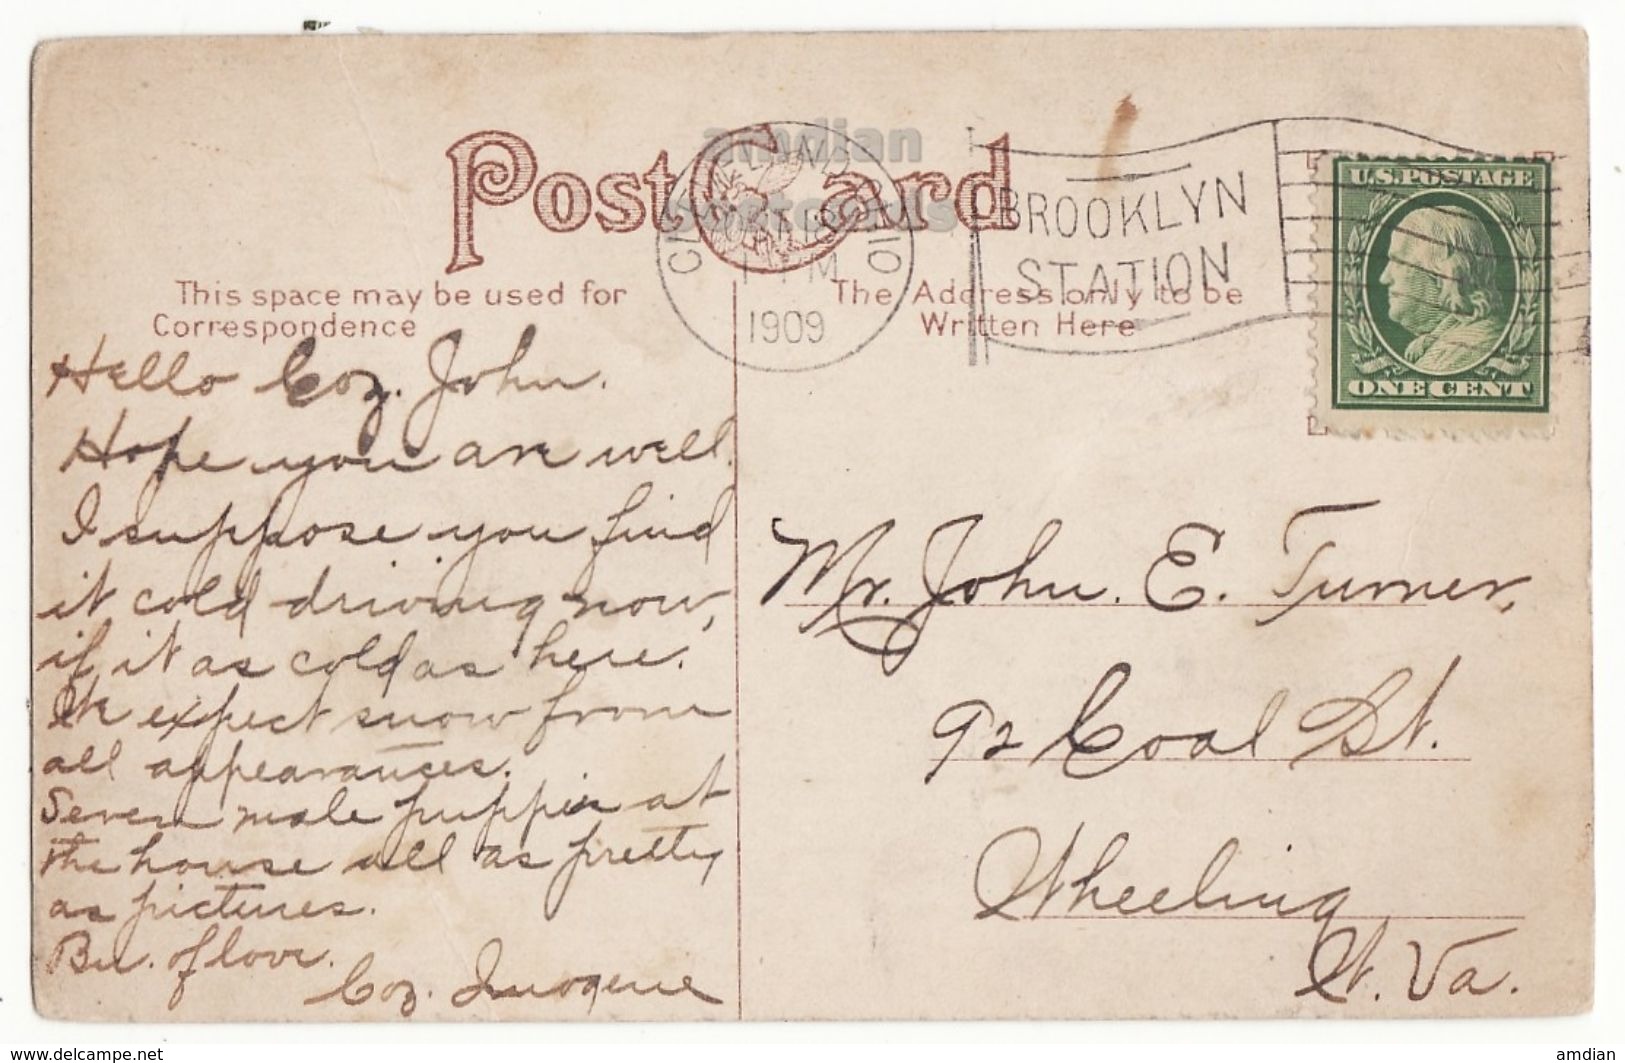 Post Card
This space may be used for
Correspondence
The Address only to be
Written Here
CLEVELAND, OHIO
1909
BROOKLYN
STATION
U.S. POSTAGE
ONE CENT
Hello Coz. John.
Hope you are well.
I suppose you find
it cold driving now,
if it as cold as here.
expect snow from
all appearances.
Seven male puppies at
the house all as pretty
as pictures.
Bu. of love.
Coz. Imogene
Mr. John. E. Turner,
92 Coal St.
Wheeling
W. Va.
amdian
postcards
www.delcampe.net
amdian